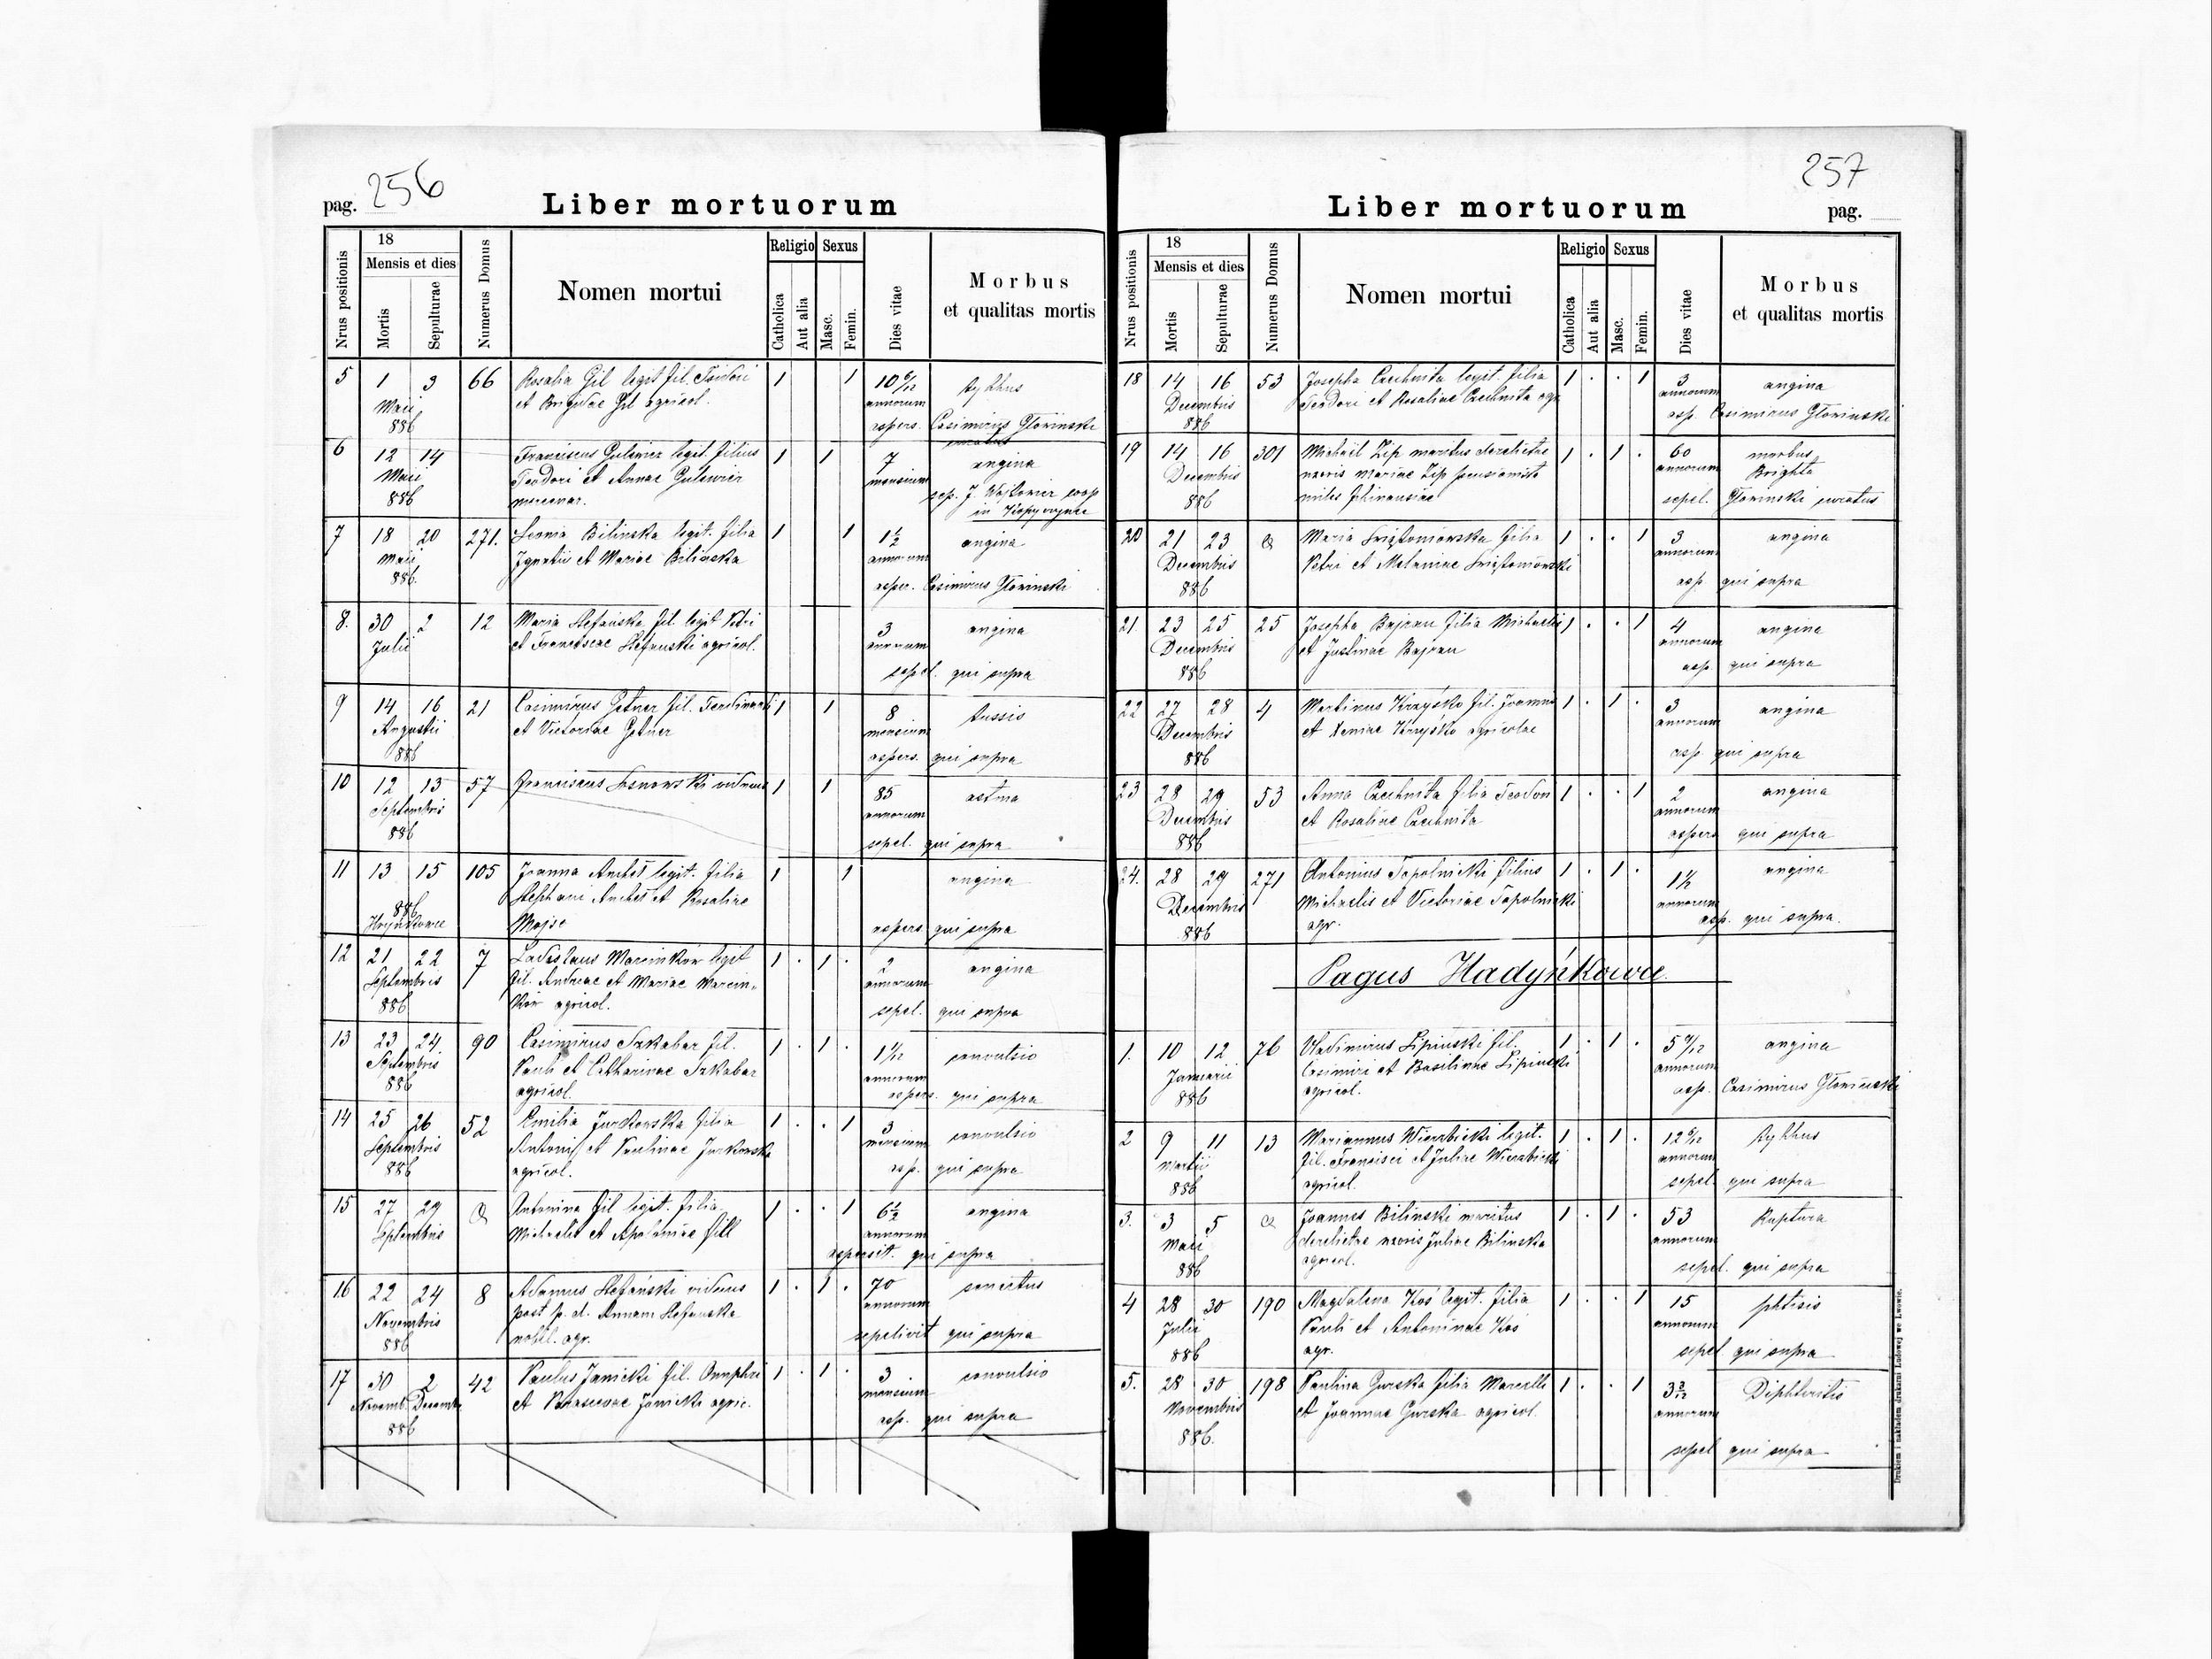 256
pag.
Liber mortuorum
Nrus positionis
18
Mensis et dies
Mortis
Sepulturae
Numerus Domus
Nomen mortui
Religio
Catholica
Aut alia
Sexus
Masc.
Femin.
Dies vitae
Morbus
et qualitas mortis
5 1 3 66 Rosalia Gil legit fil. Teodori 1 1 10 6/12 typhus
Maii et Brigidae Gil agricol. annorum
886 aspers. Casimirus Głowinski
6 12 14 Franciscus Gulewicz legit. filius 1 1 7 angina
Maii Teodori et Annae Gulewicz mensium
886 mercenar. sep. J. Wojtowicz coop
in
7 18 20 271. Bilinska legit. filia 1 1 1 1/2 angina
Maii Ignatii et Mariae Bilinska annorum
886. asper. Casimirus Głowinski
8. 30 2 12 Maria Stefanska fil. legit Petri 3 angina
Julii et Franciscae Stefanski agricol. annorum
sepel. qui supra
9 14 16 21 Casimirus Getner fil. Ferdinandi 1 1 8 tussis
Augustii et Victoriae Getner mensium
886 aspers. qui supra
10 12 13 57 Franciscus viduus 1 1 85 astma
Septembris annorum
886 sepel. qui supra
11 13 15 105 Joanna legit. filia 1 1 angina
886 Stephani et Rosaliae
Mojse aspers. qui supra
12 21 22 7 Ladislaus Marcinków legit 1 . 1 . 2 angina
Septembris fil. Andreae et Mariae Marcin„ annorum
886 ków agricol. sepel. qui supra
13 23 24 90 Casimirus Szkabar fil. 1 . 1 . 1 1/12 convulsio
Septembris Pauli et Catharinae Szkabar annorum
886 agricol. aspers. qui supra
14 25 26 52 Emilia Jurkowska filia 1 . . 1 3 convulsio
Septembris Antonii et Paulinae Jurkowska mensium
886 agricol. asp. qui supra
15 27 29 Antonina Gil legit. filia 1 . . 1 6 1/2 angina
Septembris Michaelis et Apoloniae Gill annorum
aspersit. qui supra
16 22 24 8 Adamus Stefański viduus 1 . 1 . 70 senectus
Novembris post p. d. Annam Stefanska annorum
886 nobil. agr. sepelivit qui supra
17 30 2 42 Paulus Janicki fil. Onuphri 1 . 1 . 3 convulsio
Novemb. Decemb. et Parascevae Janicki agric. mensium
886 asp. qui supra
257
Liber mortuorum
pag.
Nrus positionis
18
Mensis et dies
Mortis
Sepulturae
Numerus Domus
Nomen mortui
Religio
Catholica
Aut alia
Sexus
Masc.
Femin.
Dies vitae
Morbus
et qualitas mortis
18 14 16 53 Josepha Czechnita legit. filia 1 . . 1 3 angina
Decembris Teodori et Rosaliae Czechnita agr. annorum
886 asp. Casimirus Głowinski
19 14 16 301 Michail Zip maritus derelictae 1 . 1 . 60 morbus
Decembris uxoris Mariae Zip pensionista annorum Brighta
886 miles sepel. Głowinski curatus
20 21 23 Maria filia 1 . . 1 3 angina
Decembris Petri et Melaniae annorum
886 asp qui supra
21. 23 25 25 Josepha Bajrau filia Michaelis 1 . . 1 4 angina
Decembris et Justinae Bajrau annorum
886 asp. qui supra
22 27 28 4 Martinus Krzyśko fil. Joannis 1 . 1 . 3 angina
Decembris et Xeniae Krzyśko agricolae annorum
886 asp. qui supra
23 28 29 53 Anna Czechnita filia Teodori 1 . . 1 2 angina
Decembris et Rosaliae Czechnita annorum
886 aspers qui supra
24. 28 29 271 Antonius Topolnicki filius 1 . 1 . 1 1/2 angina
Decembris Michaelis et Victoriae Topolnicki annorum
886 agr. asp. qui supra.
Pagus Hadyńkowce.
1. 10 12 76 Vladimirus Lipinski fil. 1 . 1 . angina
Januarii Casimiri et Basilinae Lipinski annorum
886 agricol. asp. Casimirus Głowinski
2 9 11 13 Mariannus Wierzbicki legit. 1 . 1 . 12 6/12 typhus
Martii fil. Francisci et Juliae Wierzbicki annorum
886 agricol. sepel. qui supra
3. 3 5 Joannes Bilinski maritus 1 . 1 . 53 Ruptura
Maii derelictae uxoris Juliae Bilinska annorum
886 agricol. sepel. qui supra
4 28 30 190 Magdalena Koś legit. filia 1 . . 1 15 phtisis
Julii Pauli et Antoninae Kos annorum
886 agr. sepel qui supra
5. 28 30 198 Paulina Gurska filia Marcelli 1 . . 1 3 3/12 Diphteritis
Novembris et Joannae Gurska agricol. annorum
886. sepel qui supra
Drukiem i nakładem drukarni Ludowej we Lwowie.